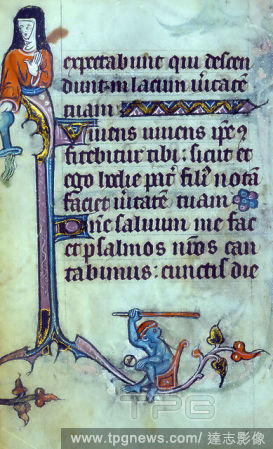 expectabunt qui descen
dunt in lacum ueritatē
tuam
Uiuens uiuens ip̄e ↄ
fitebitur tibi: sicut et
ego hodie pat̄ filiꝰ notā
faciet ūitatē tuam
Dn̄e saluum me fac
et psalmos nr̄os can
tabimus: cunctis die
TPG
www.tpgnews.com/ 達志影像